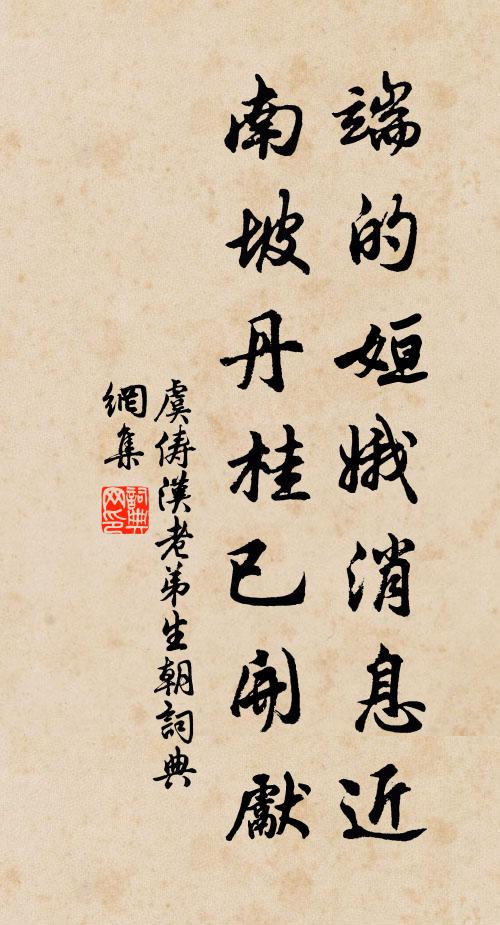 端的姮娥消息近
南坡丹桂已開獻
虞儔漢老弟生朝詞典
網集
詞典網印